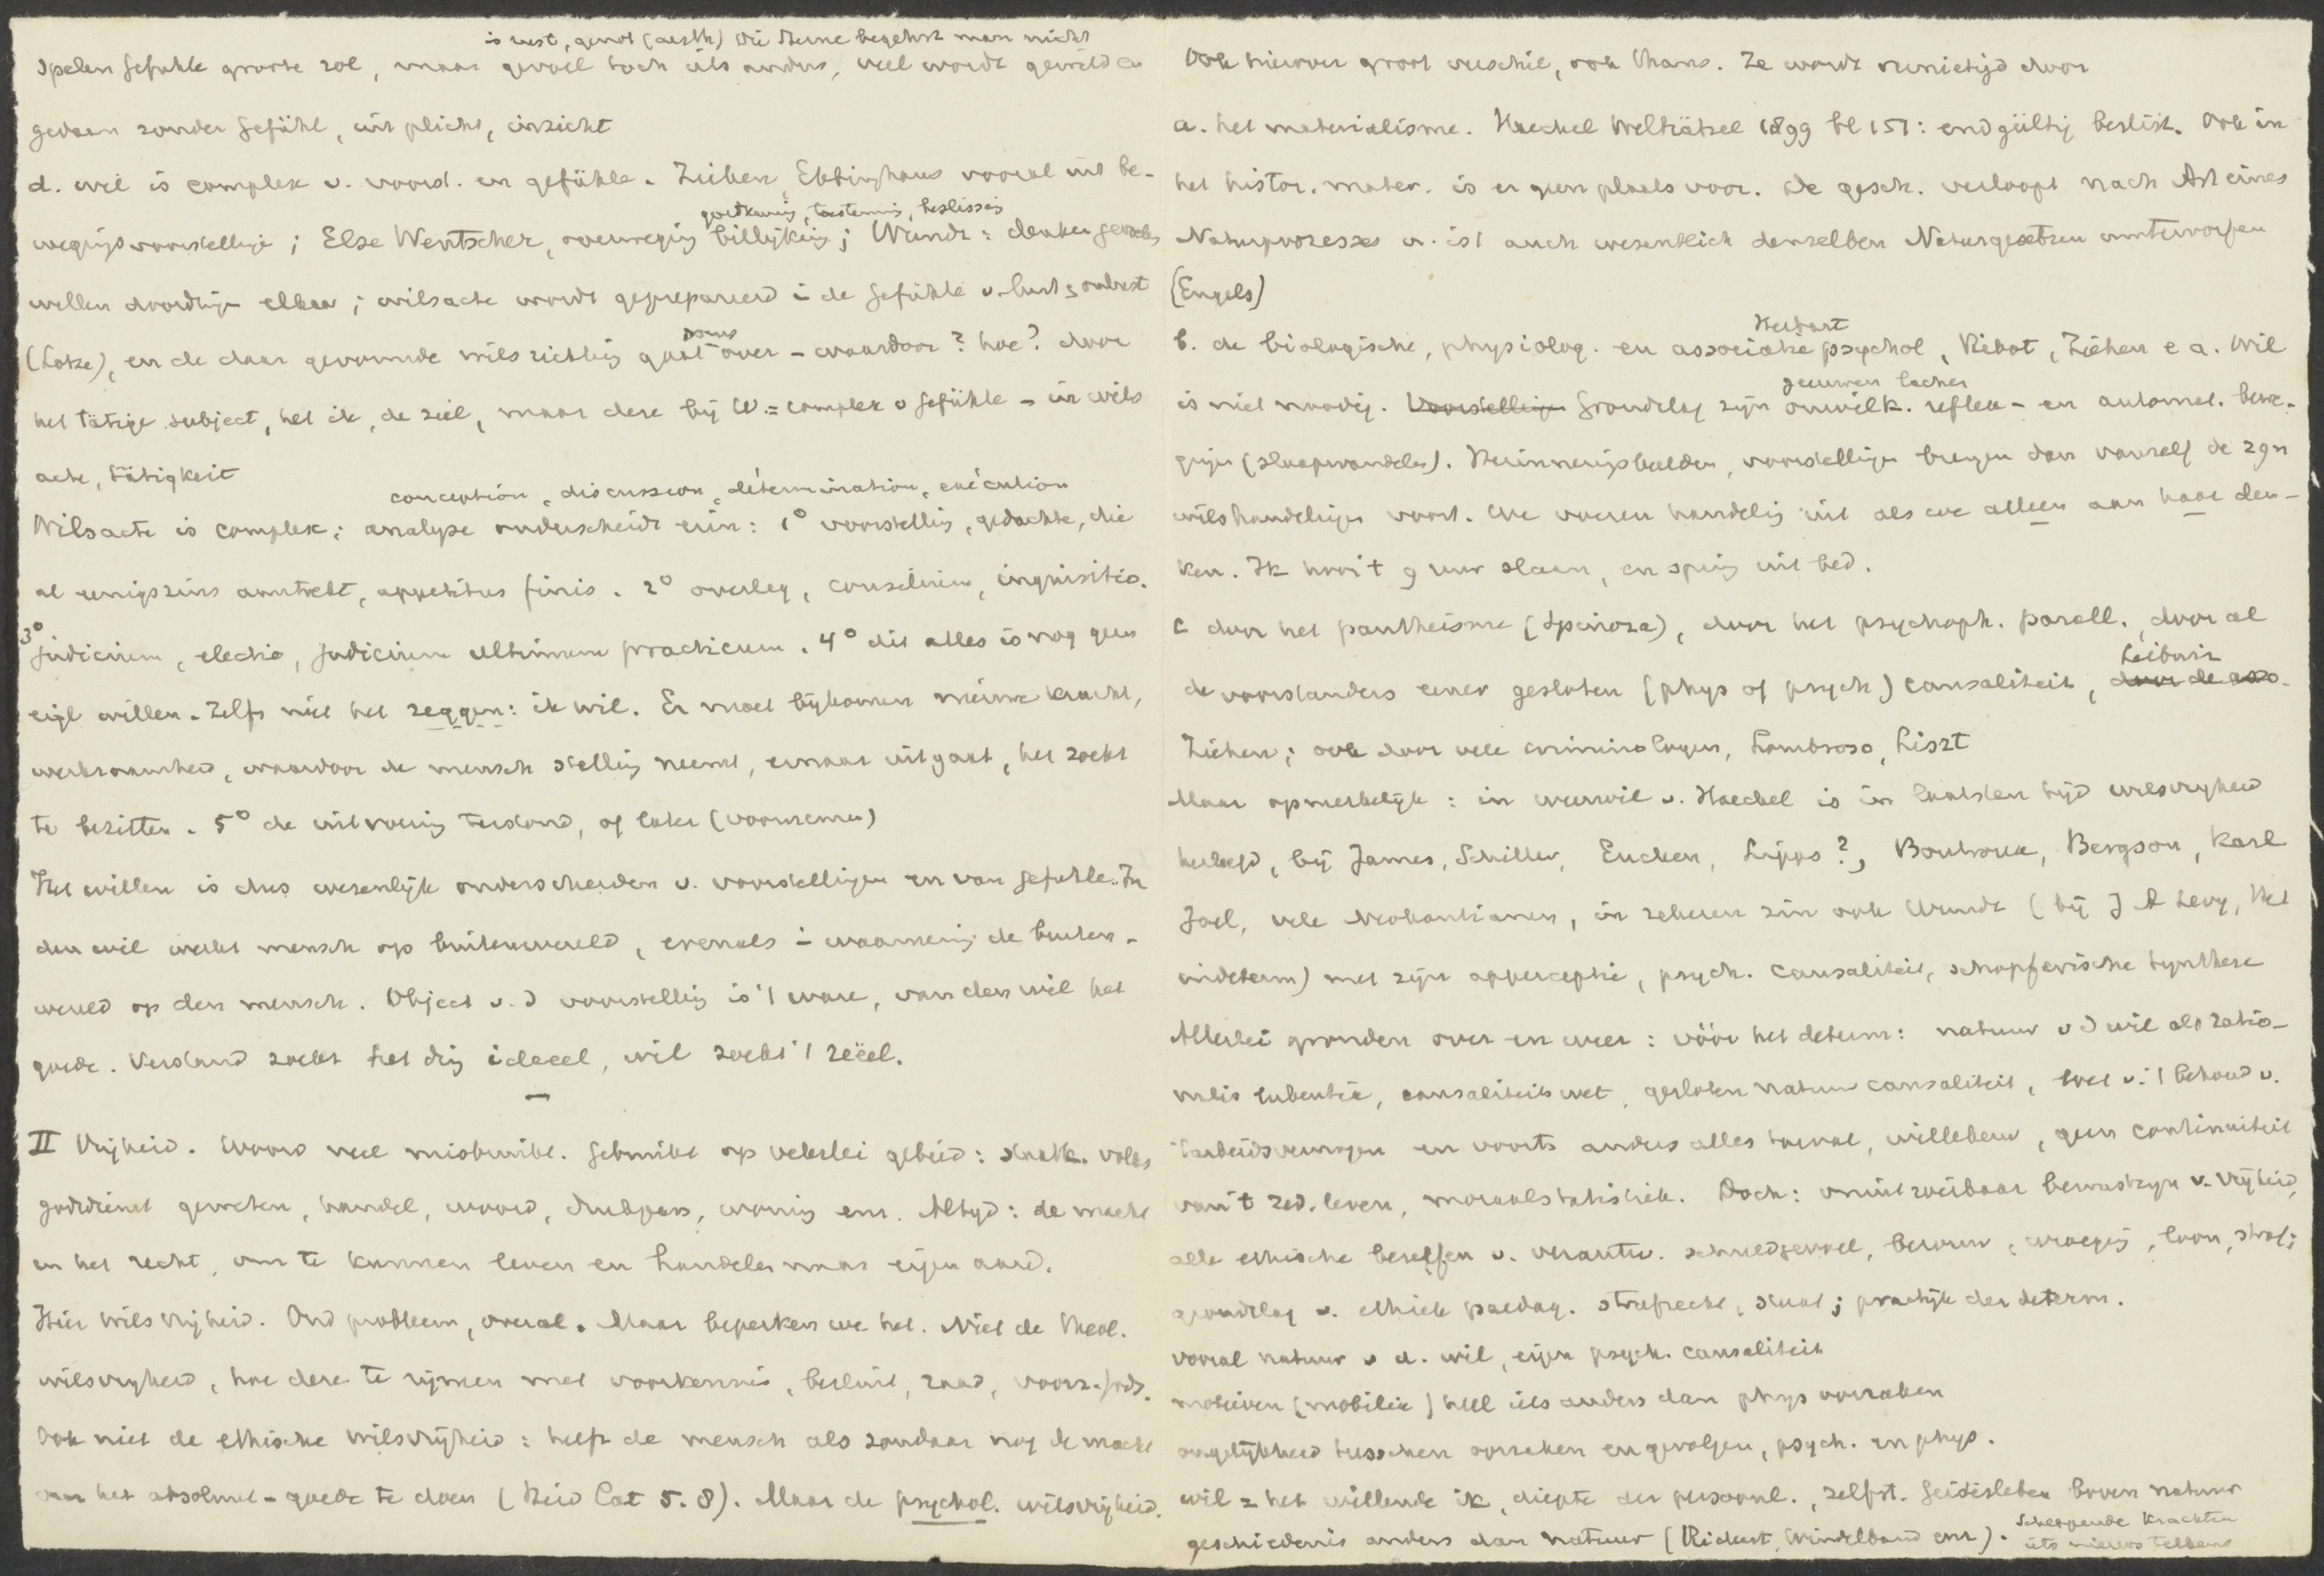 is rust, genot (aesth) Die Sterne begehrt man nicht
spelen Gefühle groote rol, maar gevoel toch iets anders, veel wordt gewild en
gedaan zonder Gefühl, uit plicht, inzicht
d. wil is complex v. voorst. en gefühle. Ziehen, Ebbinghaus vooral uit be-
goedkeuring, toestemming, beslissing
wegingsvoorstellingen; Else Wentscher, overweging billijking; Wundt: denken gevoelen
willen doordringen elkaar; wilsacte wordt geprepareerd i de Gefühle v. lust & onlust
soms
(Lotze), en de daar gevormde wilsrichting gaat over – waardoor? hoe? door
het tätige subject, het ik, de ziel, maar deze bij W. = complex v Gefühle – in wils
acte, Tätigkeit
conception, discussion, détermination, exécution
Wilsacte is complex; analyse onderscheidt erin: 1° voorstelling, gedachte, die
al eenigszins aantrekt, appetitus finis. 2° overleg, consilium, inquisitio.
3° judicium, electio, judicium ultimum practicum. 4° dit alles is nog geen
eigl willen. Zelfs niet het zeggen: ik wil. Er moet bijkomen nieuwe kracht,
werkzaamheid, waardoor de mensch stelling neemt, ernaar uitgaat, het zoekt
te bezitten. 5° de uitvoering terstond, of later (voornemen)
Het willen is dus wezenlijk onderscheiden v. voorstellingen en van Gefühle. In
den wil werkt mensch op buitenwereld, evenals i waarneming de buiten-
wereld op den mensch. Object v. d voorstelling is 't ware, van den wil het
goede. Verstand zoekt het ding ideëel, wil zoekt 't reëel.
—
II Vrijheid. Woord veel misbruikt. Gebruikt op velerlei gebied: staatk. volks
godsdienst geweten, handel, woord, drukpers, woning enz. Altijd: de macht
en het recht, om te kunnen leven en handelen naar eigen aard.
Hier wilsvrijheid. Oud probleem, overal. Maar beperken we het. Niet de theol.
wilsvrijheid, hoe deze te rijmen met voorkennis, besluit, raad, voorz. Gods.
Ook niet de ethische wilsvrijheid: heeft de mensch als zondaar nog de macht
om het absoluut-goede te doen (Heid Cat 5. 8). Maar de psychol. wilsvrijheid.
Ook hierover groot verschil, ook thans. Ze wordt vernietigd door
a. het materialisme. Haeckel Welträtsel 1899 bl 151: endgültig beslist. Ook in
het histor. mater. is er geen plaats voor. De gesch. verloopt nach Art eines
Naturprozesses u. ist auch wesentlich denselben Naturgesetzen unterworfen
(Engels)
Herbart
b. de biologische, physiolog. en associatie psychol, Ribot, Ziehen e a. Wil
geeuwen lachen
is niet noodig. Voorstellingen Grondslag zijn onwilk. reflex- en automat. bewe-
gingen (slaapwandelen). Herinneringsbeelden, voorstellingen brengen dan vanzelf de zgn
wilshandelingen voort. We voeren handeling uit als we alleen aan haar den-
ken. Ik hoor 't 9 uur slaan, en spring uit bed.
c door het pantheisme (Spinoza), door het psychoph. parall., door al
Leibniz
de voorstanders eener gesloten (phys of psych) causaliteit, door de asso-
Ziehen; ook door vele criminologen, Lombroso, Liszt
Maar opmerkelijk: in weerwil v. Haeckel is in laatsten tijd wilsvrijheid
herleefd, bij James, Schiller, Eucken, Lipps?, Boutroux, Bergson, Karl
Joel, vele Neokantianen, in zekeren zin ook Wundt (bij J A Levy, Het
indeterm) met zijn apperceptie, psych. causaliteit, schöpferische Synthese
Allerlei gronden over en weer: vóór het determ: natuur v d wil als ratio-
nalis, causaliteitswet, gesloten natuurcausaliteit, wet v. 't behoud v.
arbeidsvermogen en voorts anders alles toeval, willekeur, geen continuiteit
van 't zed. leven, moraalstatistiek. Doch: onuitroeibaar bewustzijn v. vrijheid,
alle ethische beseffen v. verantw. schuldgevoel, berouw, wroeging, loon, straf;
grondslag v. ethiek paedag. strafrecht, staat; practijk der determ.
vooral natuur v d. wil, eigen psych. causaliteit
motieven (mobilia) heel iets anders dan phys oorzaken
ongelijkheid tusschen oorzaken en gevolgen, psych. en phys.
wil = het willende ik, diepte der persoonl., zelfst. Geistesleben boven natuur
geschiedenis anders dan natuur (Rickert, Windelband enz). Scheppende krachten
iets nieuws telkens